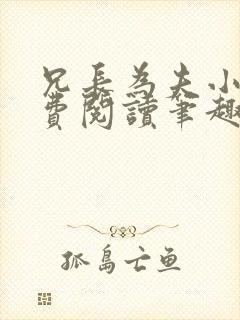 兄長為夫小
費閱讀筆趣
孤島亡魚